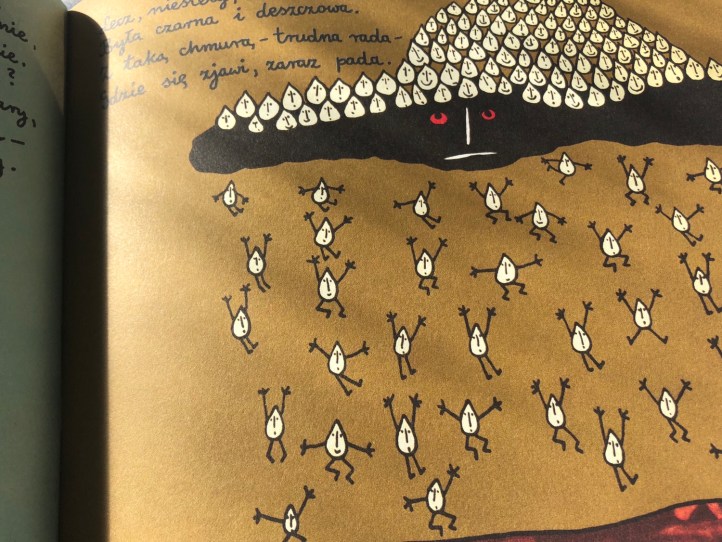 nie.
ie.
?
ny,
—
y.
Lecz, niestety,
Była czarna i deszczowa.
taką chmurą, – trudna rada –
się zjawi, zaraz pada.